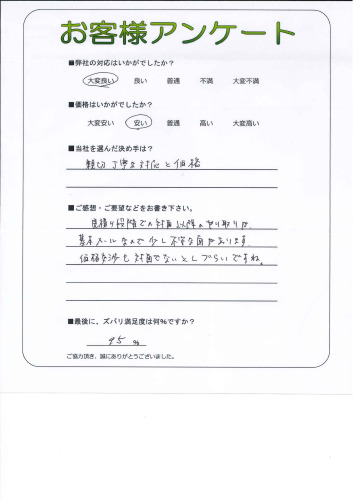 お客様アンケート
■弊社の対応はいかがでしたか?
大変良い 良い 普通 不満 大変不満
■価格はいかがでしたか?
大変安い 安い 普通 高い 大変高い
■当社を選んだ決め手は?
親切丁寧な対応と価格
■ご感想・ご要望などをお書き下さい。
見積り段階での対面以降のやり取りが、
基本メールなので少し不安な面があります。
価格交渉も対面でないとしづらいですね。
■最後に、ズバリ満足度は何%ですか?
95 %
ご協力頂き、誠にありがとうございました。